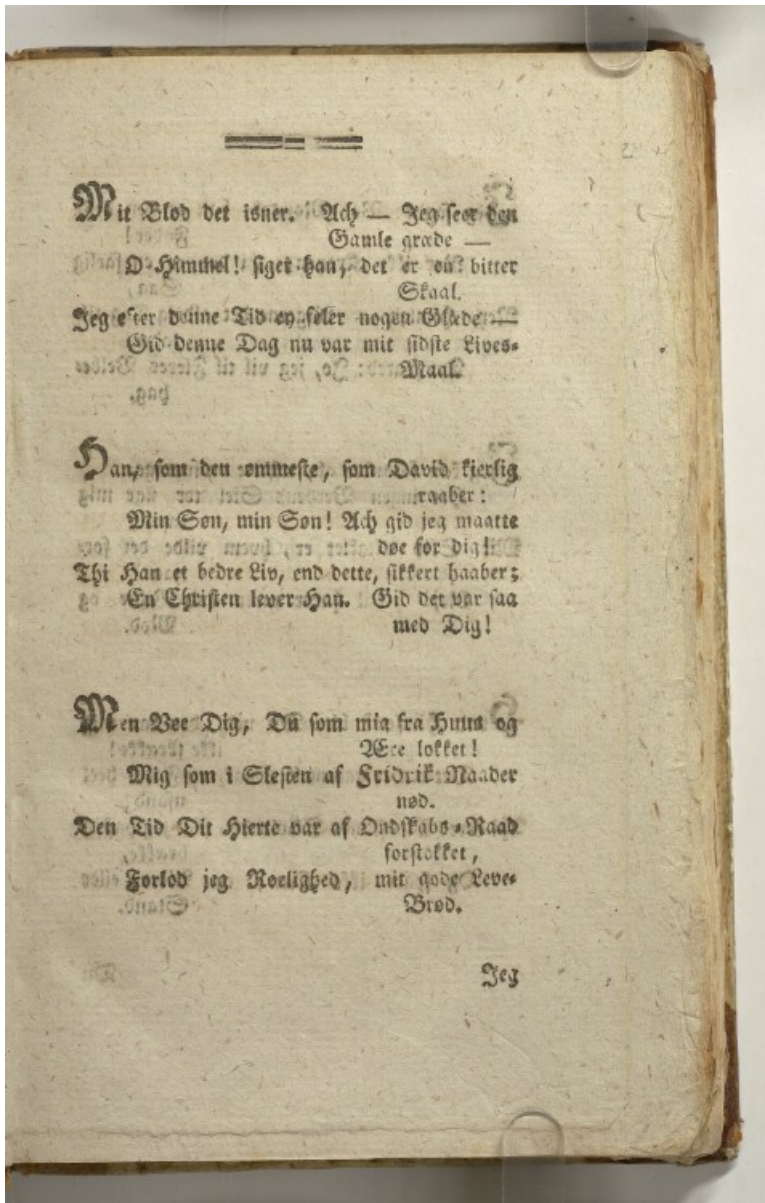 Mit Blod det isner. Ach — Jeg seer den
Gamle græde —
O Himmel! siger han, det er en bitter
Skaal.
Jeg efter denne Tid ey føler nogen Glæde —
Gid denne Dag nu var mit sidste Lives-
Maal.
Han, som den ømmeste, som David kierlig
raaber:
Min Søn, min Søn! Ach gid jeg maatte
døe for dig!
Thi Han et bedre Liv, end dette, sikkert haaber;
En Christen lever Han. Gid det var saa
med Dig!
Men Vee Dig, Du som mig fra Huus og
Ære lokket!
Mig som i Slesien af Fridrik Naader
nød.
Den Tid Dit Hierte var af Ondskabs-Raad
forstokket,
Forlod jeg Roelighed, mit gode Leve-
Brød.
Jeg